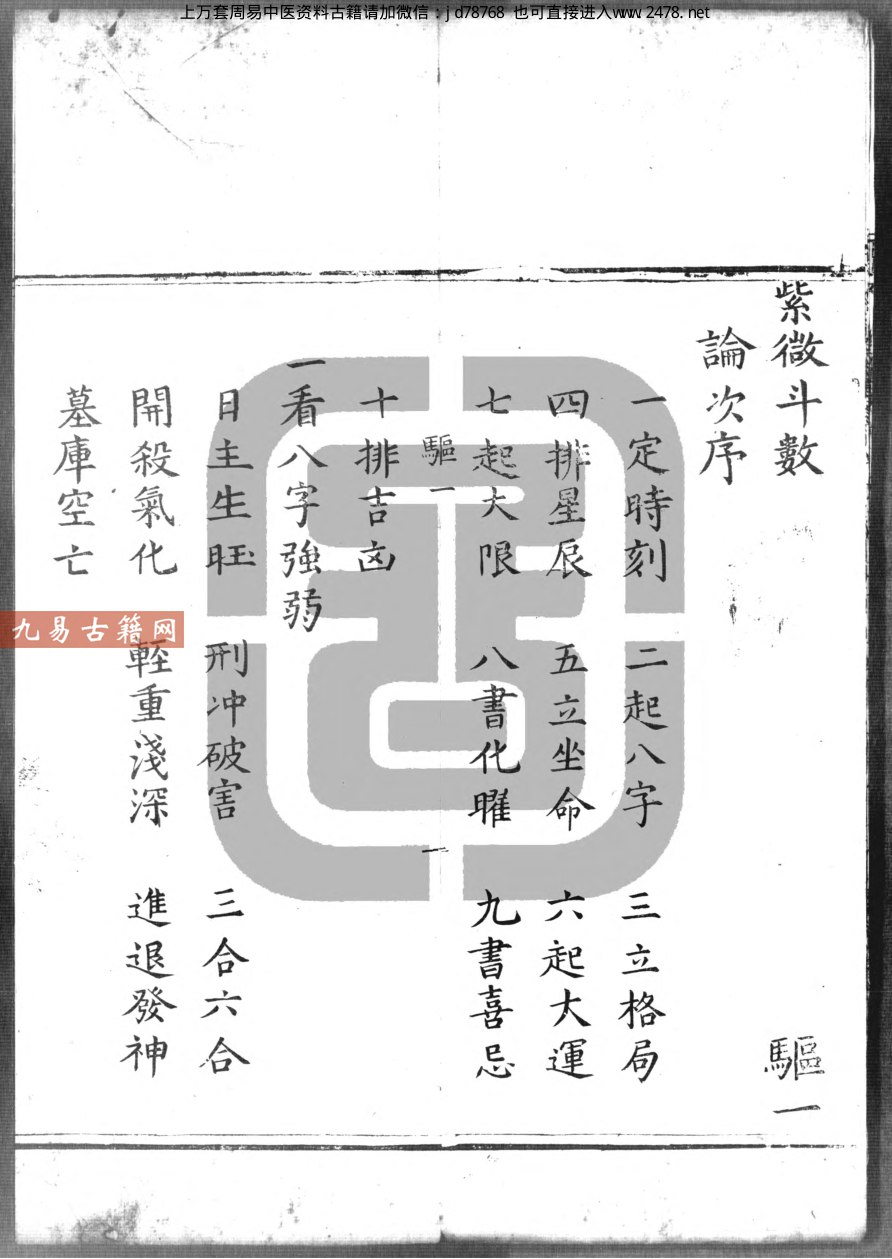 上万套周易中医资料古籍请加微信：jd78768 也可直接进入www.2478.net
紫微斗數 驅一
論次序
一定時刻 二起八字 三立格局
四排星辰 五立坐命 六起大運
七起大限 八書化曜 九書喜忌
驅一 一
十排吉凶
一看八字強弱
日主生旺 刑冲破害 三合六合
開殺氣化 輕重淺深 進退發神
墓庫空亡
九易古籍网